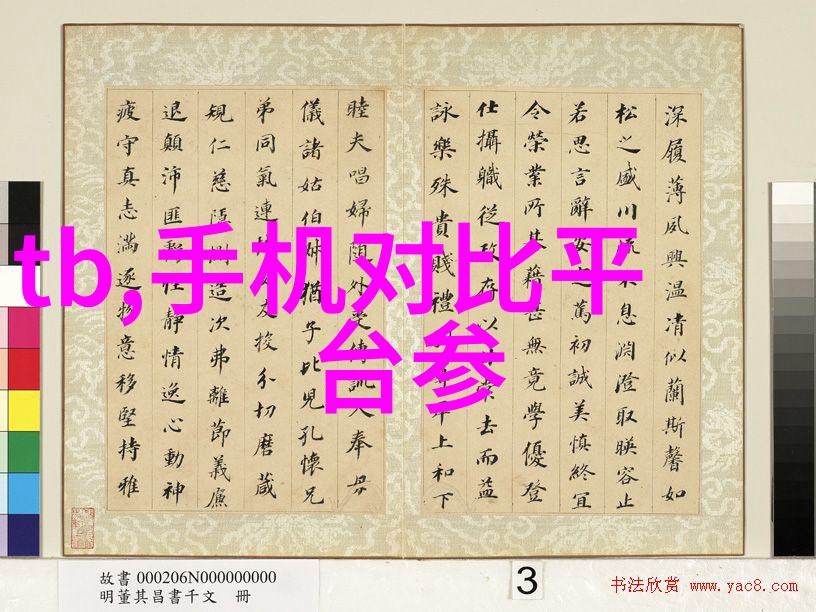 深履薄夙興温凊似蘭斯馨如
松之盛川流不息淵澄取暎容止
若思言辭安定篤初誠美慎終宜
令榮業所基藉甚無竟學優登
仕攝職從政存以甘棠去而益
詠樂殊貴賤禮別尊卑上和下
睦夫唱婦隨外受傅訓入奉母
儀諸姑伯叔猶子比兒孔懷兄
弟同氣連枝交友投分切磨箴
規仁慈隱惻造次弗離節義廉
退顛沛匪虧性靜情逸心動神
疲守真志滿逐物意移堅持雅
tb,手机对比平
台参
故書 000206N000000000
明董其昌書千文 冊
3
书法欣赏 www.yac8.com